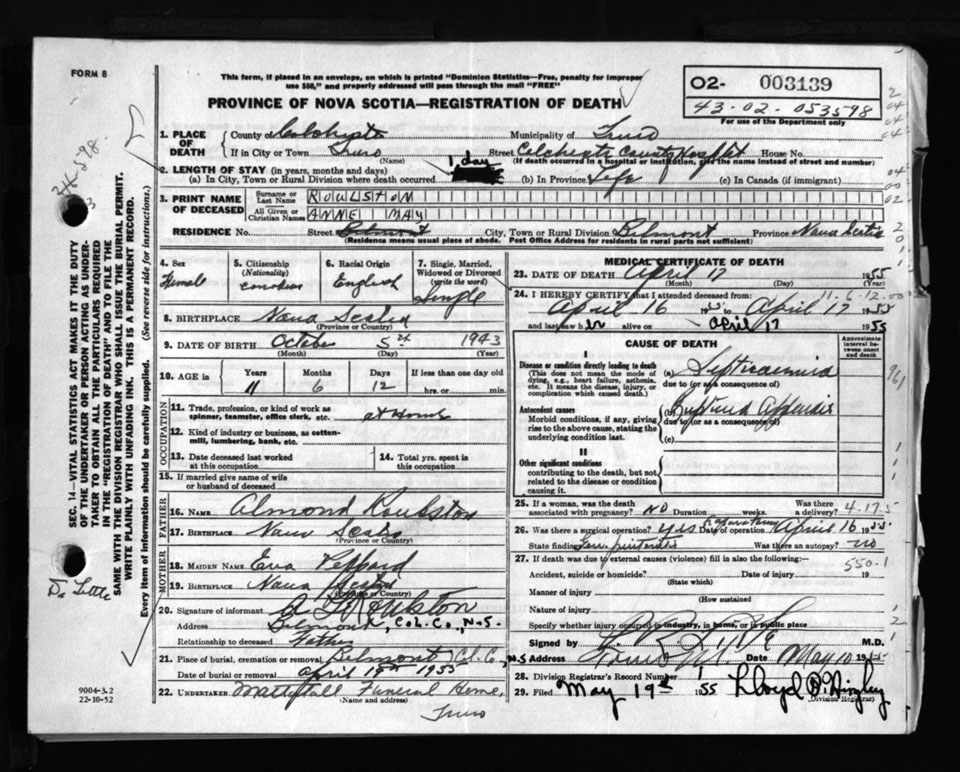 FORM 8
This form, if placed in an envelope, on which is printed "Dominion Statistics—Free, penalty for improper
use $50," and properly addressed will pass through the mail "FREE"
PROVINCE OF NOVA SCOTIA—REGISTRATION OF DEATH
O2- 003139
43-02-053598
For use of the Department only
1. PLACE OF DEATH County of Colchester Municipality of Truro
If in City or Town Truro Street Colchester County Hospital House No.
(Name) (If death occurred in a hospital or institution, give the name instead of street and number)
2. LENGTH OF STAY (in years, months and days)
(a) In City, Town or Rural Division where death occurred 1 day (b) In Province Life (c) In Canada (if immigrant)
3. PRINT NAME OF DECEASED Surname or Last Name ROULSTON
All Given or Christian Names ANNE MAY
RESIDENCE No. Street Belmont City, Town or Rural Division Belmont Province Nova Scotia
(Residence means usual place of abode. Post Office Address for residents in rural parts not sufficient)
4. Sex Female
5. Citizenship (Nationality) Canadian
6. Racial Origin English
7. Single, Married, Widowed or Divorced (write the word) Single
8. BIRTHPLACE Nova Scotia
(Province or Country)
9. DATE OF BIRTH October 5th 1943
(Month) (Day) (Year)
10. AGE in Years 11 Months 6 Days 12 If less than one day old hrs. or min.
OCCUPATION
11. Trade, profession, or kind of work as spinner, teamster, office clerk, etc. at Home
12. Kind of industry or business, as cotton-mill, lumbering, bank, etc.
13. Date deceased last worked at this occupation
14. Total yrs. spent in this occupation
15. If married give name of wife or husband of deceased
FATHER
16. NAME Almond Roulston
17. BIRTHPLACE Nova Scotia
(Province or Country)
MOTHER
18. MAIDEN NAME Eva Peppard
19. BIRTHPLACE Nova Scotia
(Province or Country)
20. Signature of informant Roulston
Address Belmont, Col. Co., N.S.
Relationship to deceased Father
21. Place of burial, cremation or removal Belmont Col. Co., N.S
Date of burial or removal April 19th 1955
22. UNDERTAKER Mattatall Funeral Home,
(Name and address)
Truro
9004-3.2
22-10-52
MEDICAL CERTIFICATE OF DEATH
23. DATE OF DEATH April 17 1955
(Month) (Day) (Year)
24. I HEREBY CERTIFY that I attended deceased from: 11-6-12-00
April 16 1955 to April 17 1955
and last saw her alive on April 17 1955
CAUSE OF DEATH
Approximate interval between onset and death
I
Disease or condition directly leading to death (a) Septicaemia
(This does not mean the mode of dying, e.g., heart failure, asthenia, etc. It means the disease, injury, or complication which caused death.)
due to (or as a consequence of)
Antecedent causes
Morbid conditions, if any, giving rise to the above cause, stating the underlying condition last.
Ruptured Appendix
due to (or as a consequence of)
(c)
II
Other significant conditions
contributing to the death, but not related to the disease or condition causing it.
25. If a woman, was the death associated with pregnancy? NO Duration weeks. Was there a delivery?
4-17-5
26. Was there a surgical operation? yes Date of operation April 16 1955
State finding Gen. peritonitis Was there an autopsy? no
27. If death was due to external causes (violence) fill in also the following:
550.1
Accident, suicide or homicide? Date of injury 19
(State which)
Manner of injury
(How sustained
Nature of injury
Specify whether injury occurred in industry, in home, or in public place
Signed by M.D.
Address Truro N.S. Date May 10 1955
28. Division Registrar's Record Number
29. Filed May 19th 1955 Lloyd
(Division Registrar)
SEC. 14—VITAL STATISTICS ACT MAKES IT THE DUTY
OF THE UNDERTAKER OR PERSON ACTING AS UNDERTAKER TO OBTAIN ALL THE PARTICULARS REQUIRED
IN THE "REGISTRATION OF DEATH" AND TO FILE THE
SAME WITH THE DIVISION REGISTRAR WHO SHALL ISSUE THE BURIAL PERMIT.
WRITE PLAINLY WITH UNFADING INK. THIS IS A PERMANENT RECORD.
Every item of information should be carefully supplied. (See reverse side for instructions.)
Dr Little